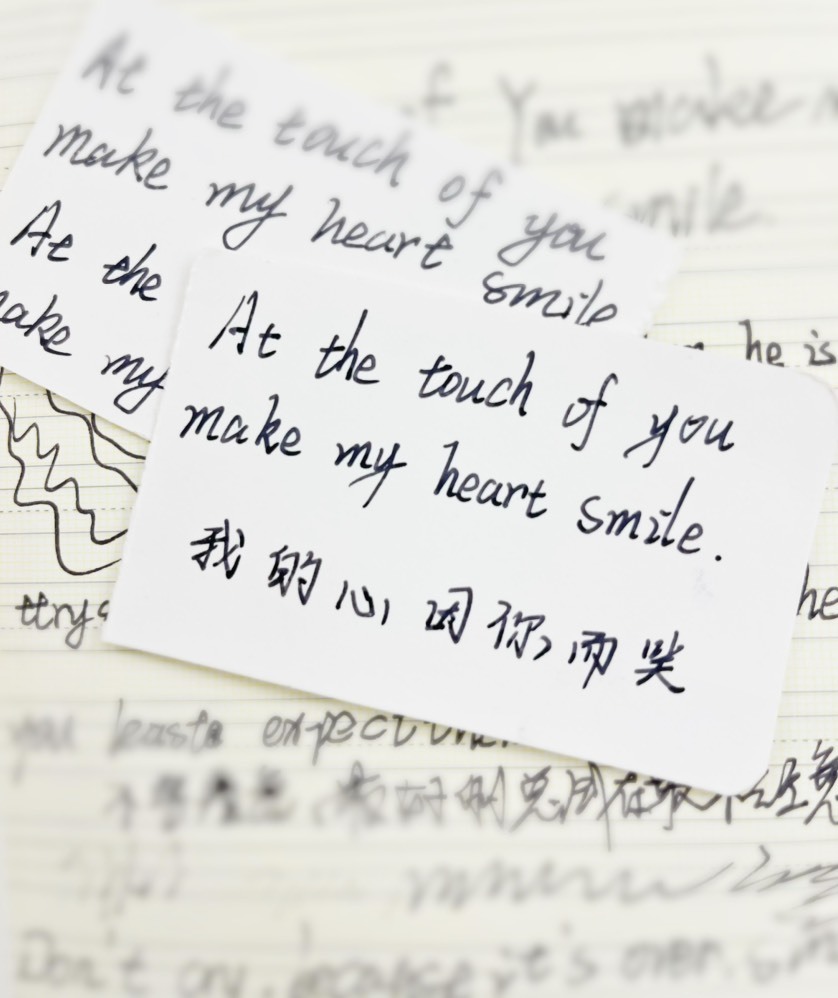 f You make
smile.
At the touch of you
make my heart smile
At the
make my
he is
At the touch of you
make my heart smile.
我的心因你而笑
he
you expect
Don't cry, it's over,